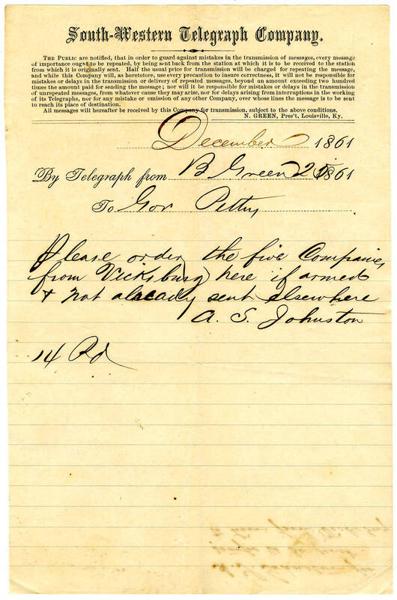 South-Western Telegraph Company.
The Public are notified, that in order to guard against mistakes in the transmission of messages, every message
of importance ought to be repeated, by being sent back from the station at which it is to be received to the station
from which it is originally sent. Half the usual price for transmission will be charged for repeating the message,
and while this Company will, as heretofore, use every precaution to insure correctness, it will not be responsible for
mistakes or delays in the transmission or delivery of repeated messages, beyond an amount exceeding two hundred
times the amount paid for sending the message; nor will it be responsible for mistakes or delays in the transmission
of unrepeated messages, from whatever cause they may arise, nor for delays arising from interruptions in the working
of its Telegraphs, nor for any mistake or omission of any other Company, over whose lines the message is to be sent
to reach its place of destination.
All messages will hereafter be received by this Company for transmission, subject to the above conditions.
N. GREEN, Pres't, Louisville, Ky.
December 1861
By Telegraph from B Green 1861
To Gov Pettus
Please order the five Companies
from Vicksburg here if armed
& not already sent elsewhere
A. S. Johnston
14 Pd